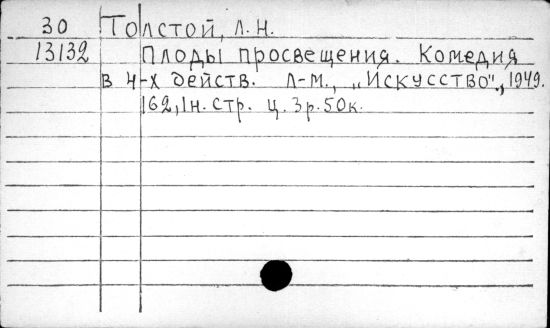 30 Толстой, Л. Н.
13132 Плоды просвещения. Комедия
в 4-х действ. Л-М., „Искусство", 1949.
162, 1н. стр. ц. 3р. 50к.